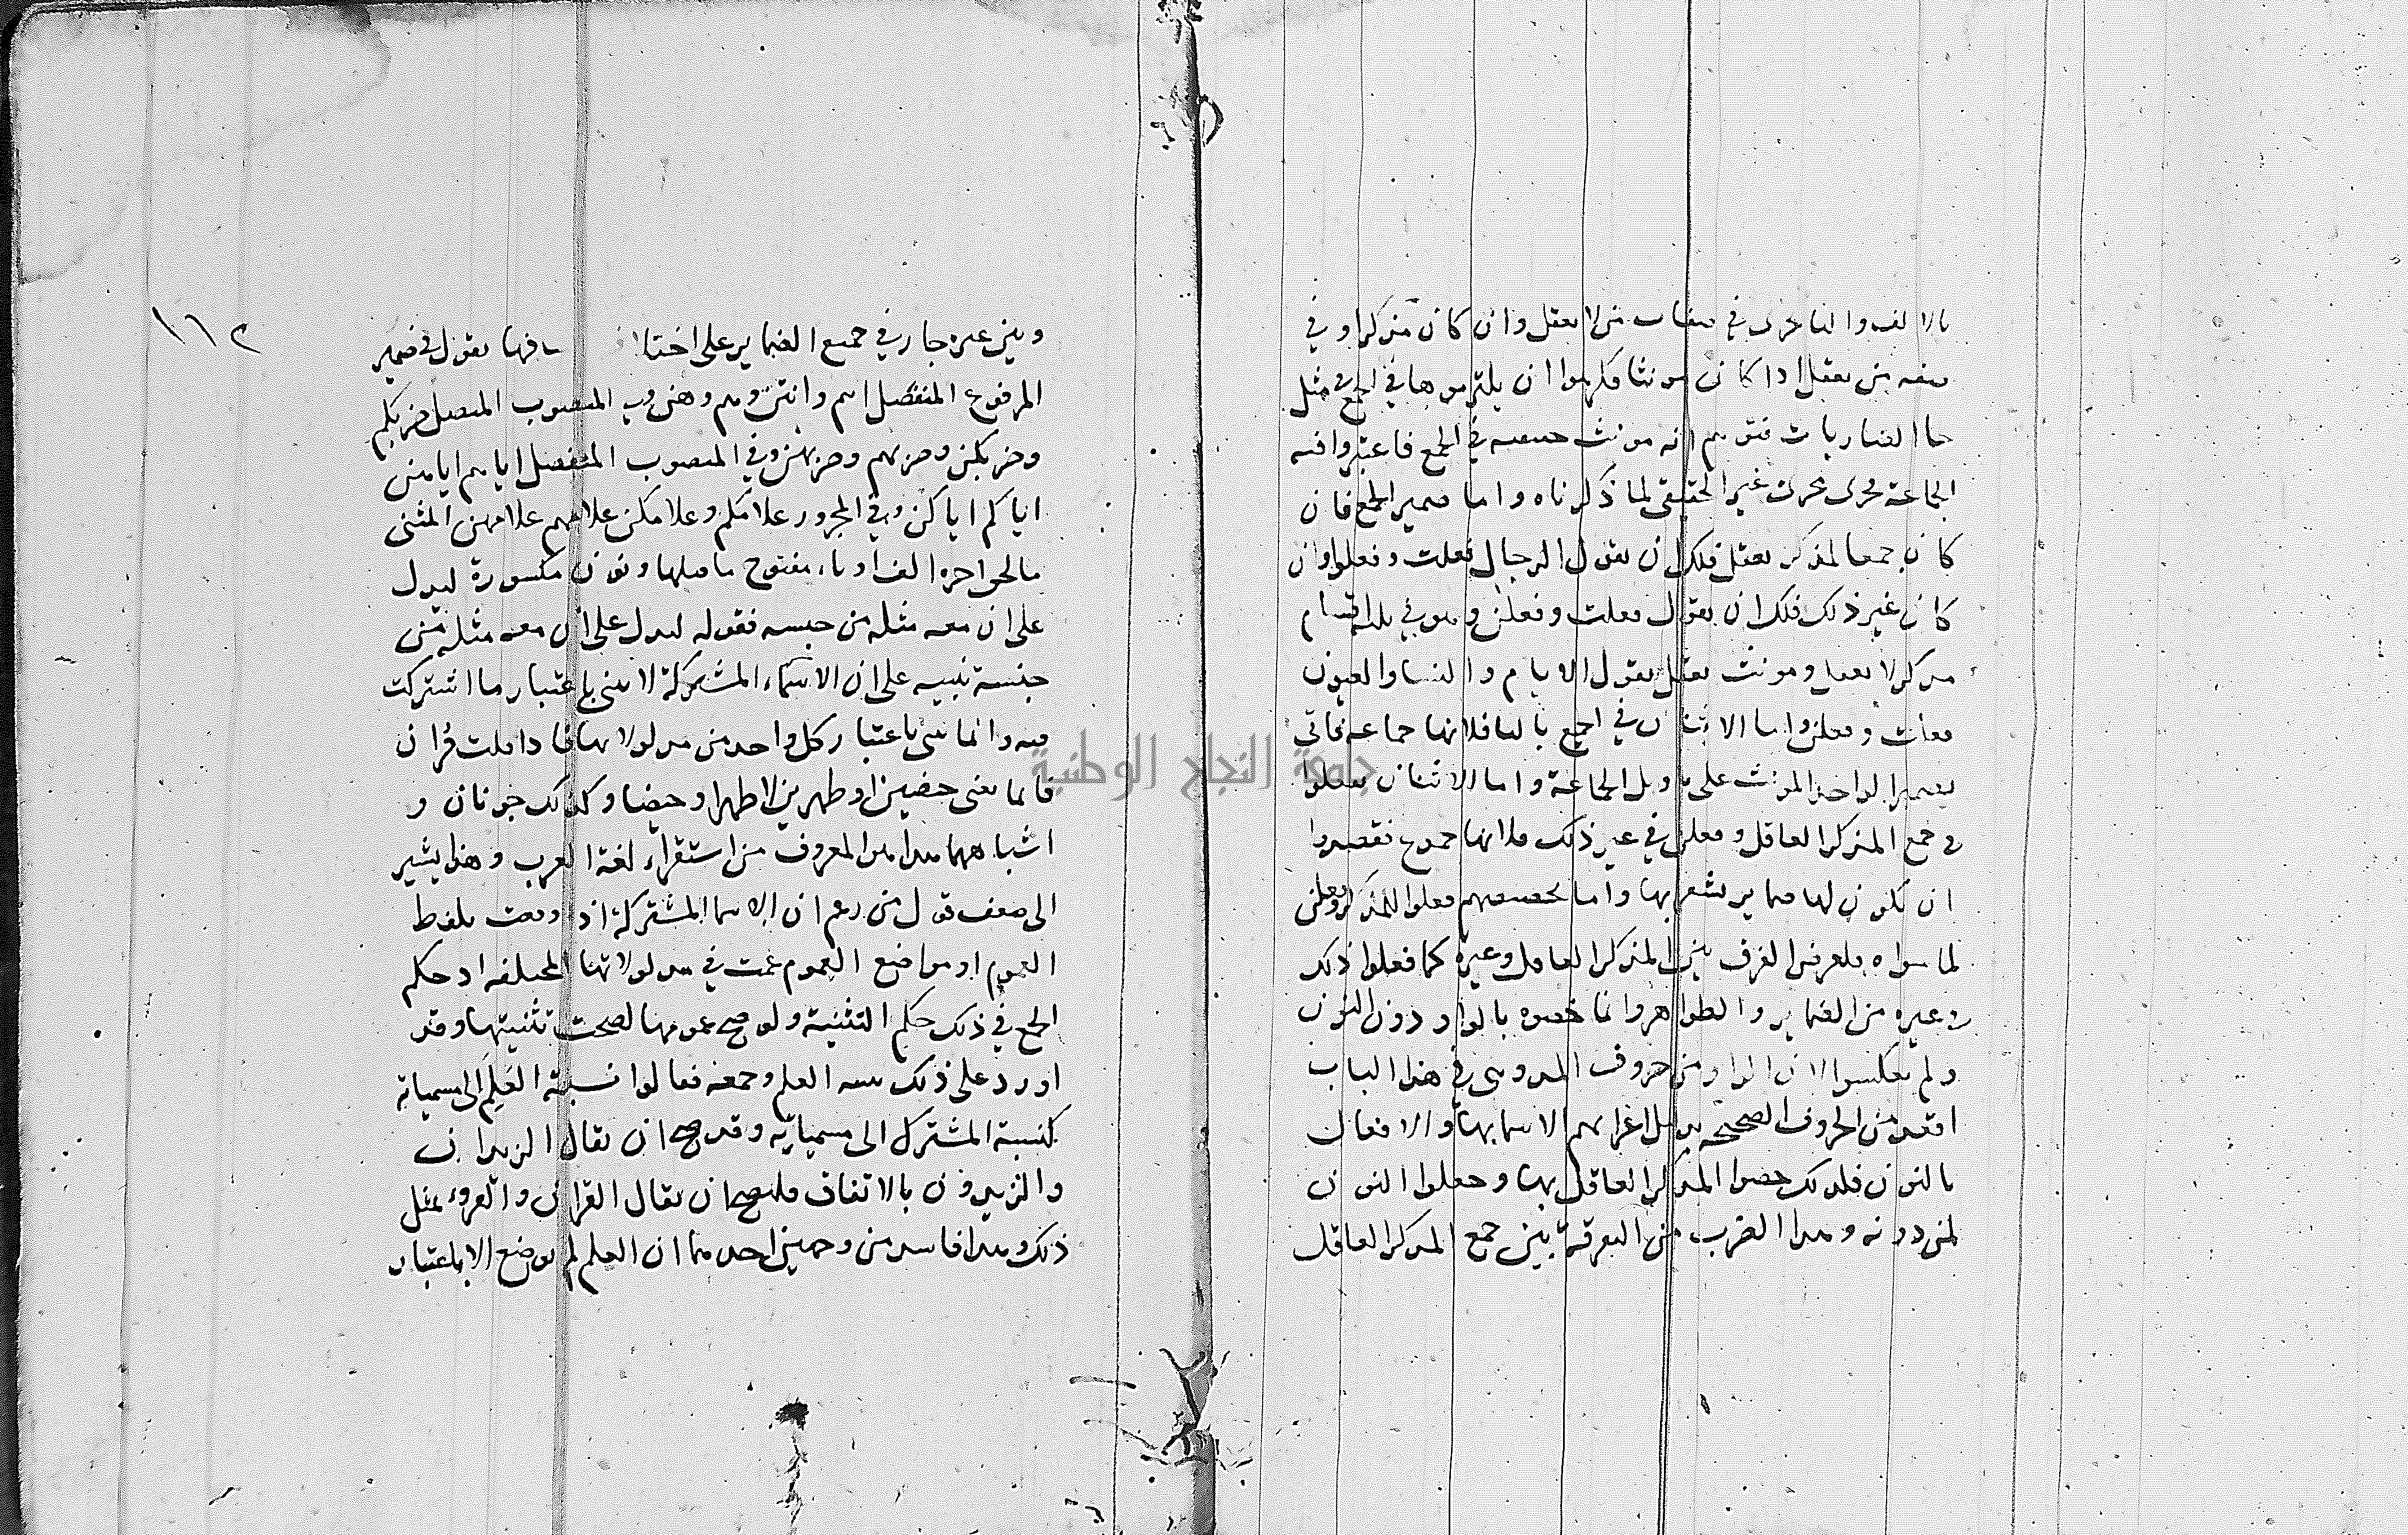 بالالف والتا تجرى في صفات من لا يعقل وان كان مذكرا وفي
صفه من يعقل اذا كان مونثا فكرهوا ان يلتزموها في الجمع في مثل
جا الضاربات فتوهم انه مونث حقيقه في الجمع فاعتبروا فيه
الجماعة مجرى غير الحقيقي لما ذكرناه واما ضمير الجمع فان
كان جمعا لمذكر يعقل فلك ان يقول الرجال فعلت وفعلوا وان
كان غير ذلك فلك ان يقول فعلت وفعلن وهو في اقسام
مذكر لا يعقل ومونث يعقل يقول الايام والنسا والعيون
فعلت وفعلن واما الاتيان في الجميع بالتا فلانها جماعه
بضمير الواحد المونث على تاويل الجماعة واما الاتيان بفعلوا
في جمع المذكر العاقل وفعلن في غير ذلك فلانها جموع فقصدوا
ان يكون لها ضماير يشعر بها واما تخصيصهم فعلوا للمذكر وفعلن
لما سواه فلغرض الفرق بين المذكر العاقل وغيره كما فعلوا ذلك
في غيره من الضماير والظواهر وانما خصوه بالواو دون النون
ولم يعكسوا لان الواو من حروف المد وهى في هذا الباب
اقعد من الحروف الصحيحه بدليل اعرابهم الاسما بها والافعال
بالنون فلذلك خصوا المذكر العاقل بها وجعلوا النون
لمن دونه وهذا الضرب من التفرقة بين جمع المذكر العاقل
١١٢
وبين غيره جار في جميع الضماير على اختلا فها يقول في ضمير
المرفوع المنفصل انتم وانتن وهم وهن وفي المنصوب المتصل ضربكم
وضربكن وضربهم وضربهن وفي المنصوب المنفصل اياهم اياهن
اياكم اياكن وفي المجرور غلامكم وغلامكن غلامهم غلامهن المثنى
ما لحق اخره الف او يا، مفتوح ما قبلها ونون مكسورة ليدل
على ان معه مثله من جنسه فقوله ليدل على ان معه مثله من
جنسه تنبيه على ان الاسماء المشتركة لا تثنى باعتبار ما اشتركت
فيه وانما تثنى باعتبار كل واحد من مدلولاتها فاذا قلت قران
فانما تعنى حيضين او طهرين لا طهرا وحيضا وكذلك جونان و
اشباههما هذا هو المعروف من استقراء لغة العرب وهذا يشير
الى ضعف قول من زعم ان الاسما المشتركة اذا وقعت بلفظ
العموم او مواضع العموم عمت في مدلولاتها المختلفه اذ حكم
الجمع في ذلك حكم التثنية ولو صح عمومها لصحت تثنيتها وقد
اورد على ذلك تثنية العلم وجمعه فقالوا نسبة العلم الى مسمياته
كنسبة المشترك الى مسمياته وقد صح ان يقال الزيدان
والزيدون بالاتفاق فليصح ان يقال القران والقروء بمثل
ذلك وهذا فاسد من وجهين احدهما ان العلم لم يوضع الا باعتبار
جامعة النجاح الوطنية